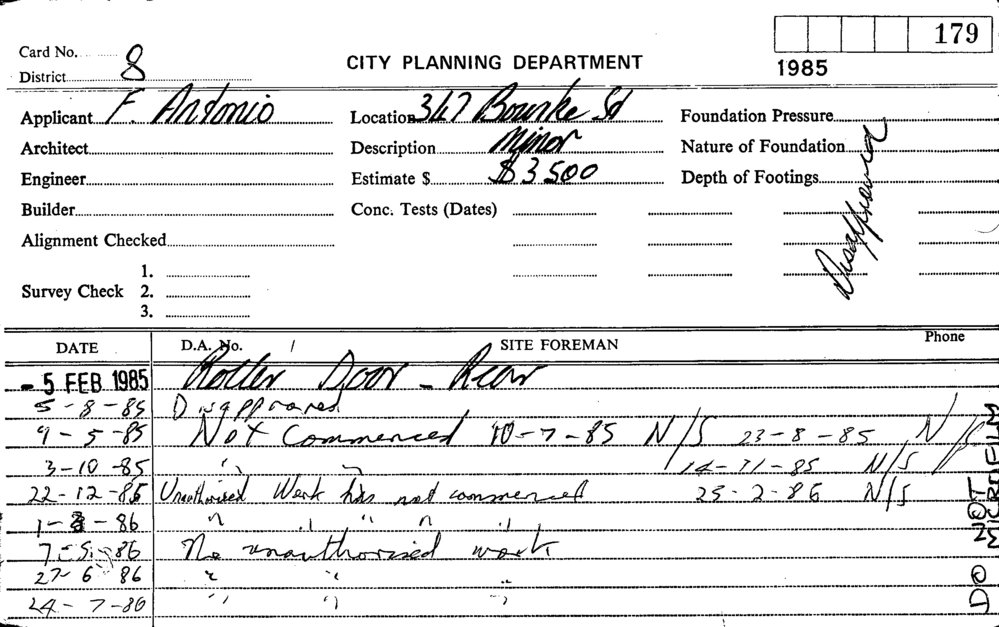 179
Card No.
8
CITY PLANNING DEPARTMENT
District
1985
Applicant F. Antonio
Location 347 Bourke St
Foundation Pressure
Architect
Description Minor
Nature of Foundation
Engineer
Estimate $ $3500
Depth of Footings
Builder
Conc. Tests (Dates)
Disapproved
Alignment Checked
Survey Check
1.
2.
3.
DATE D.A. No. / SITE FOREMAN Phone
- 5 FEB 1985 Roller Door - Rear
5-8-85 Disapproved
9-5-85 Not Commenced 10-7-85 N/S 23-8-85 N/S
3-10-85 " " 14-11-85 N/S
22-12-85 Unauthorised Work has not commenced 25-2-86 N/S
1- -86 " " " " "
7-5-86 No unauthorised work
27-6 86 " " "
24-7-86 " " "
DO NOT MICROFILM